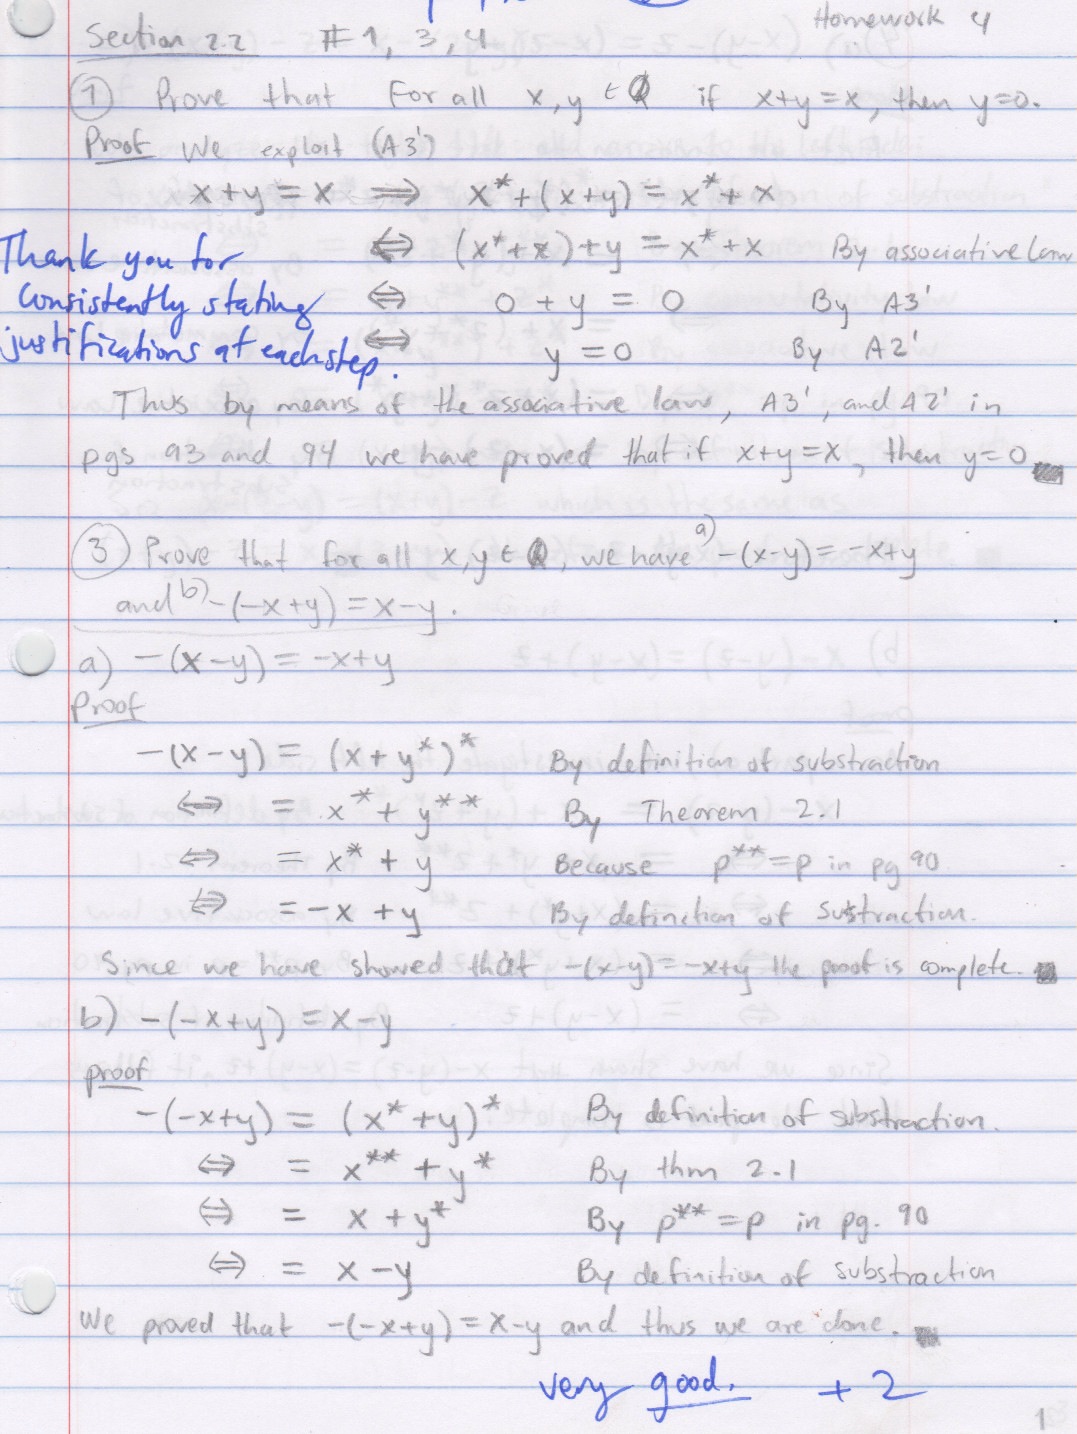 Homework 4
Section 2.2 # 1, 3, 4
① Prove that For all x, y ∈ Q if x+y=x, then y=0.
Proof We exploit (A3')
x+y = x ⟹ x* + (x+y) = x* + x
⇔ (x*+x)+y = x*+x By associative law
⇔ 0 + y = 0 By A3'
⇔ y = 0 By A2'
Thank you for
consistently stating
justifications at each step.
Thus by means of the associative law, A3', and A2' in
pgs 93 and 94 we have proved that if x+y=x, then y=0.
③ Prove that for all x,y ∈ Q, we have a) -(x-y)=-x+y
and b) -(-x+y)=x-y.
a) -(x-y)=-x+y
Proof
-(x-y) = (x+y*)* By definition of substraction
⇔ = x* + y** By Theorem 2.1
⇔ = x* + y Because p**=p in pg 90
⇔ = -x + y By definction of substraction.
Since we have showed that -(x-y)=-x+y the proof is complete.
b) -(-x+y) = x-y
proof
-(-x+y) = (x*+y)* By definition of substraction.
⇔ = x** + y* By thm 2.1
⇔ = x + y* By p**=p in pg. 90
⇔ = x-y By definition of substraction
We proved that -(-x+y)=x-y and thus we are done.
very good. +2
1